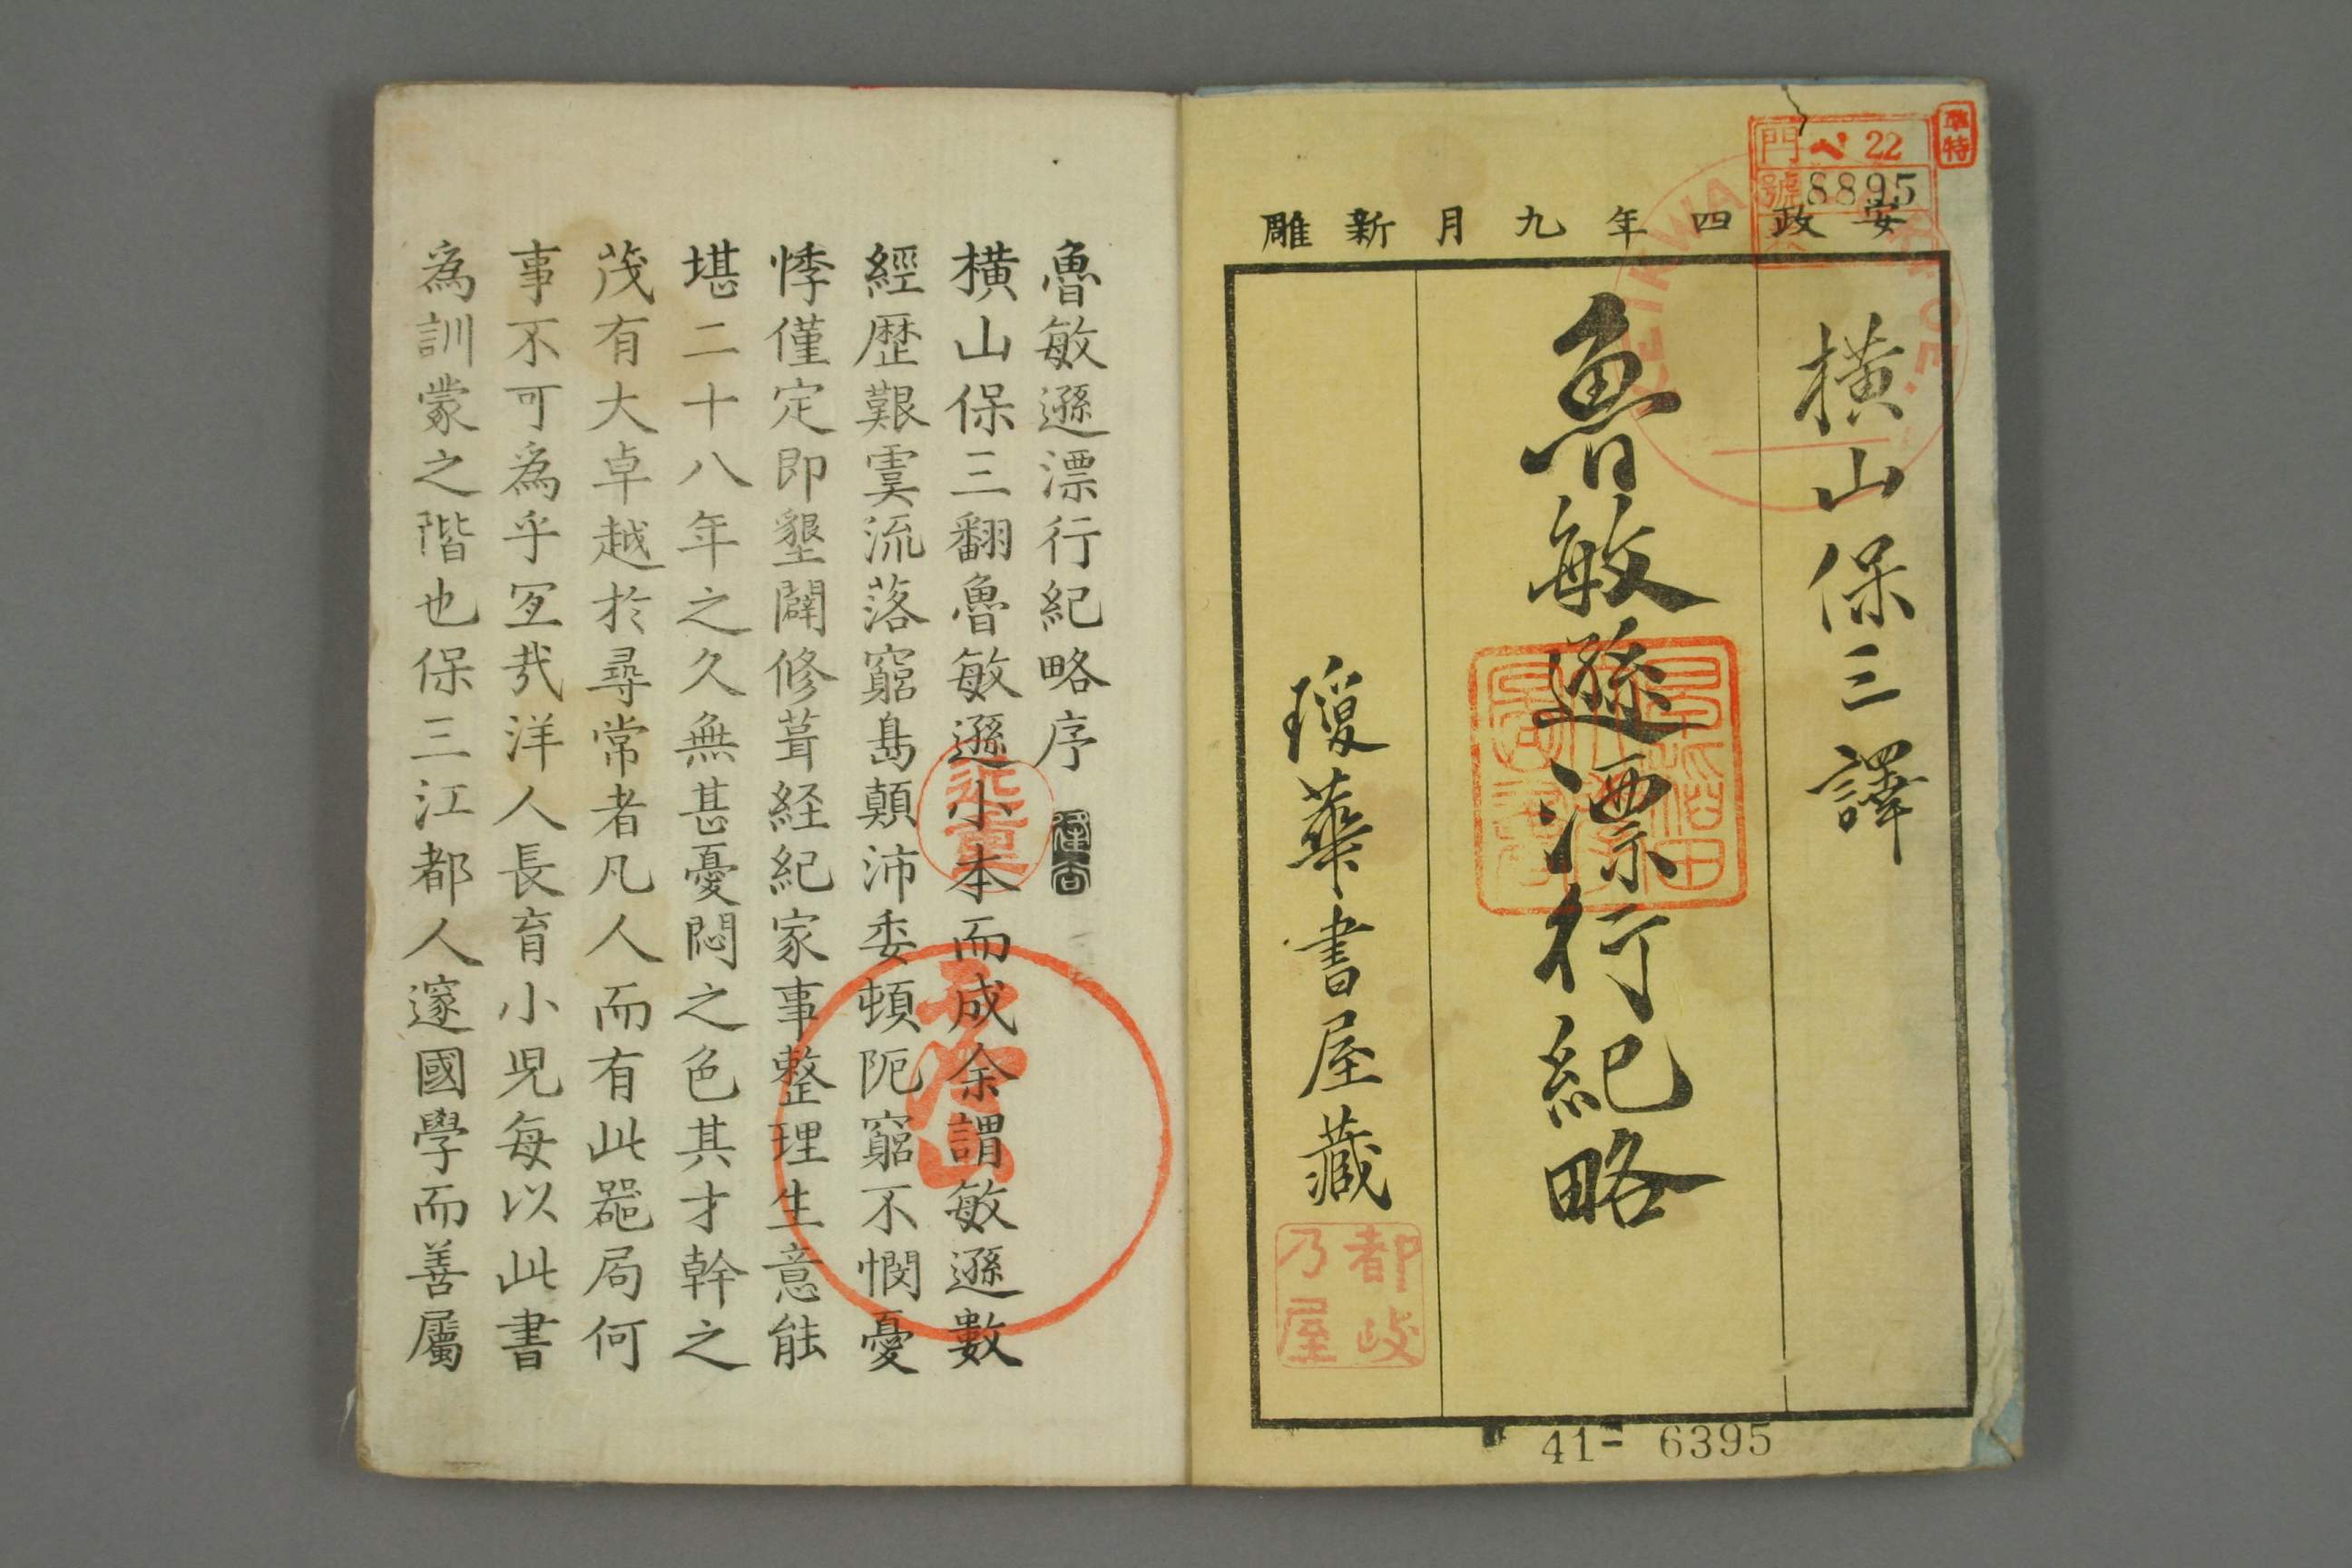 安政四年九月新雕
横山保三譯
魯敏遜漂行紀略
瓊華書屋藏
門 ペ 22
號 8895
準特
早稲田
都岐
乃屋
41- 6395
魯敏遜漂行紀略序
横山保三翻魯敏遜小本而成余謂敏遜數
經歴艱雯流落窮島顛沛委頓阨窮不憫憂
悸僅定即墾闢修葺経紀家事整理生意能
堪二十八年之久無甚憂悶之色其才幹之
茂有大卓越於尋常者凡人而有此器局何
事不可為乎宜哉洋人長育小児毎以此書
為訓蒙之階也保三江都人邃國學而善屬